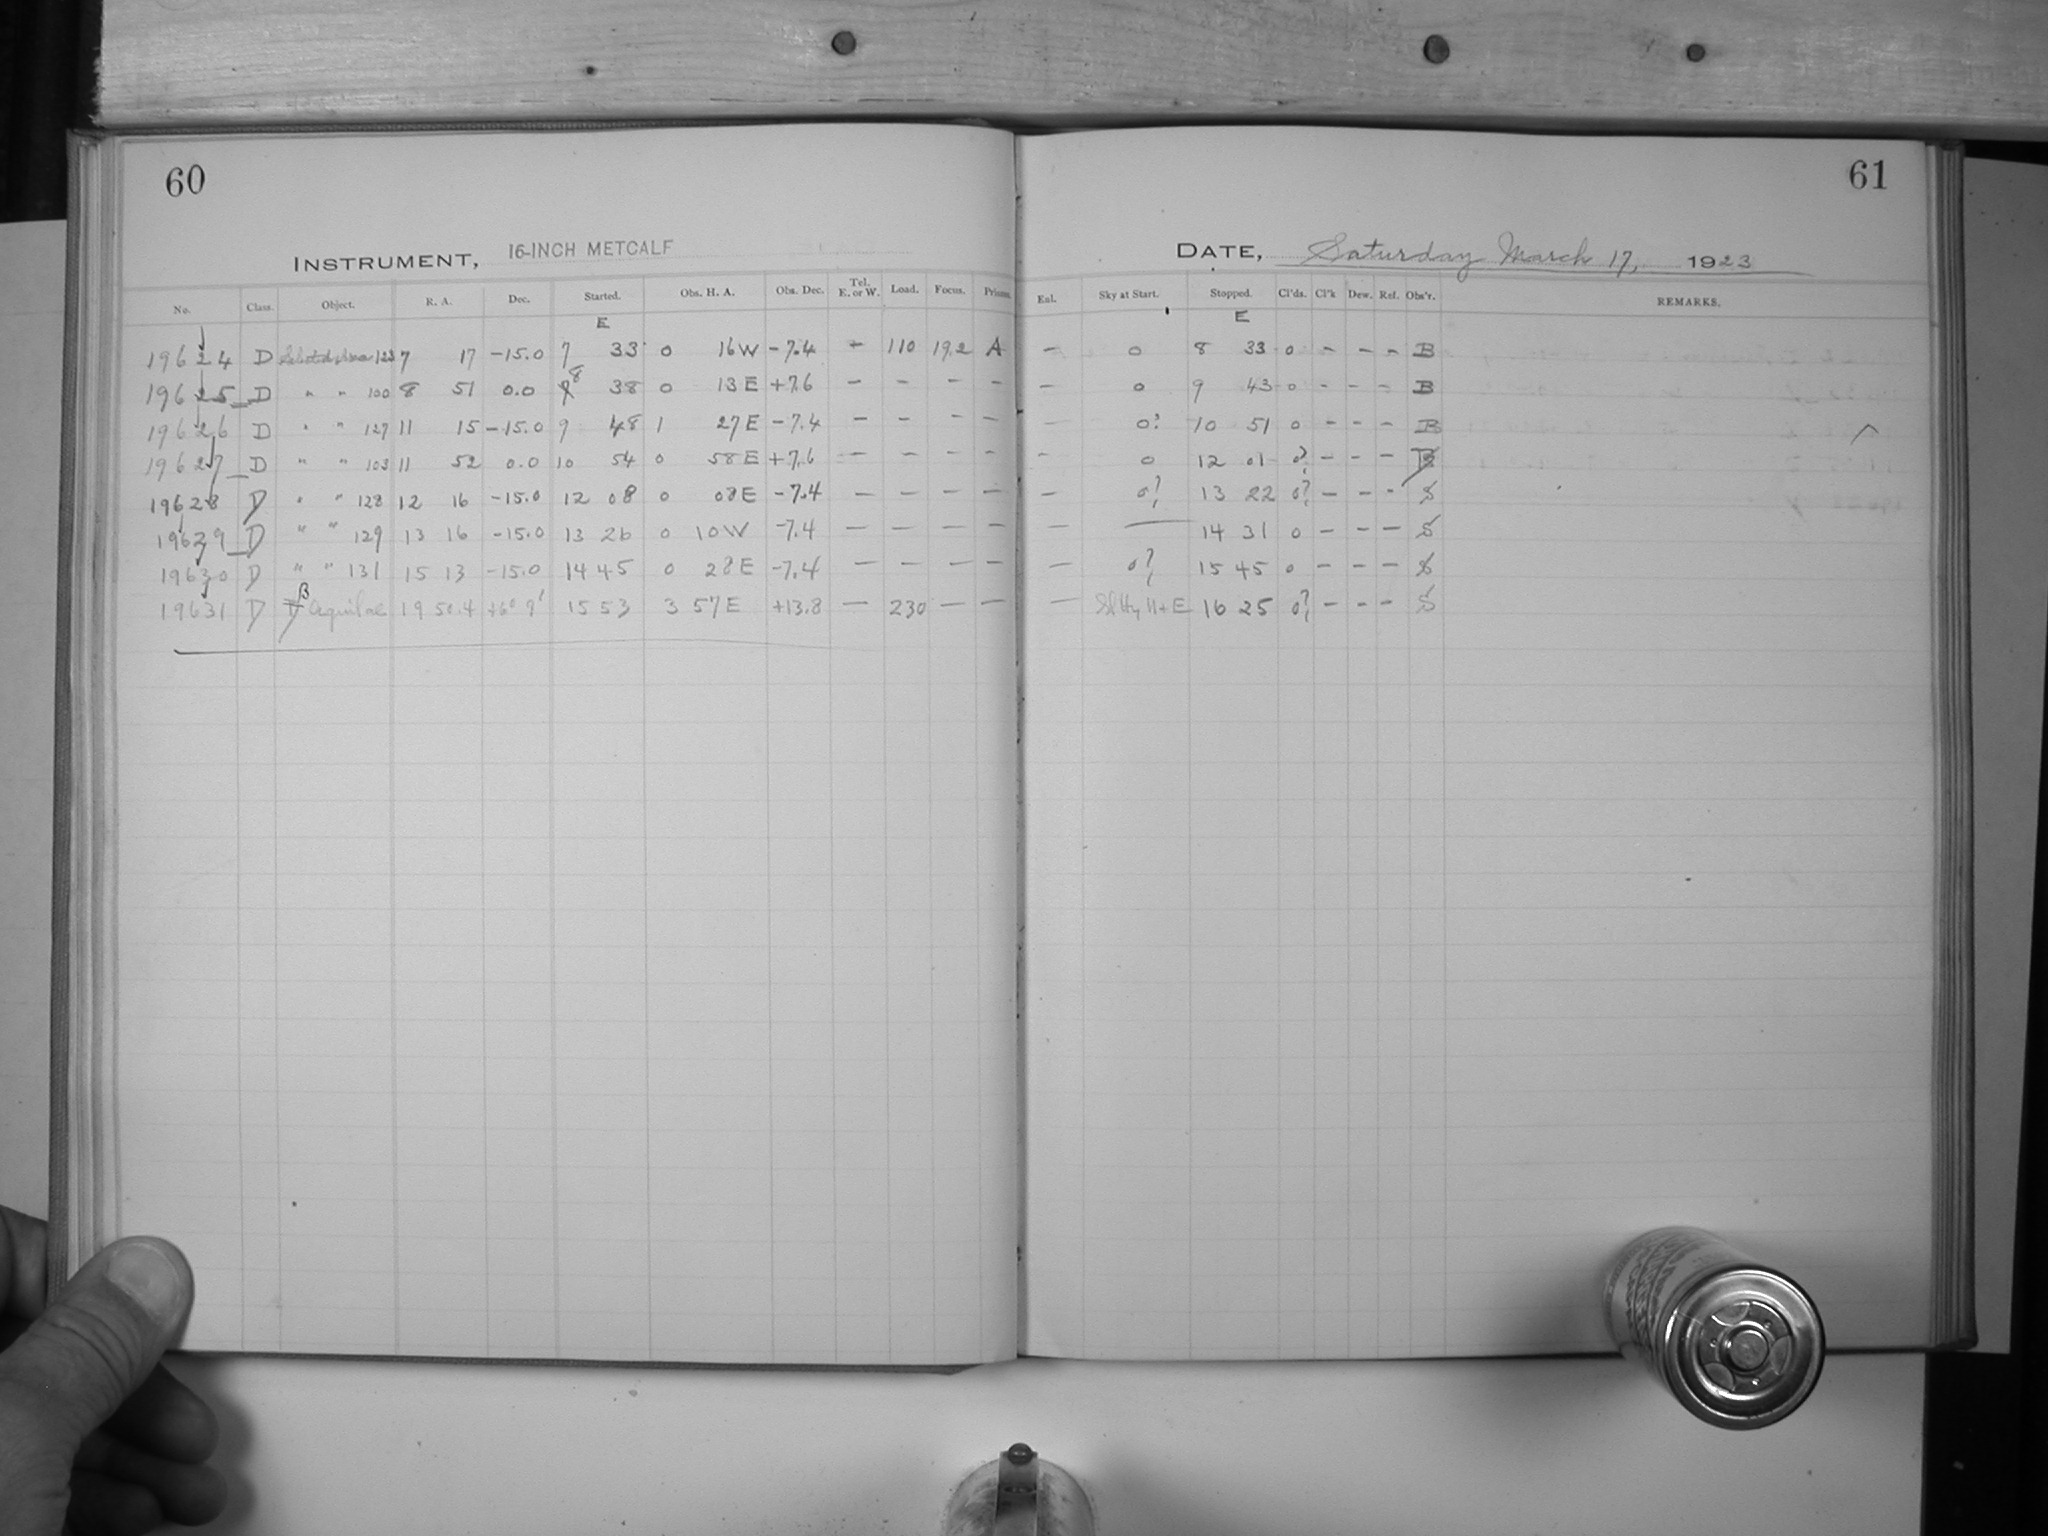 60
61
INSTRUMENT, 16-INCH METCALF
DATE, Saturday March 17, 1923
No. Class. Object. R. A. Dec. Started. Obs. H. A. Obs. Dec. Tel. E. or W. Load. Focus. Prisms. Enl. Sky at Start. Stopped. Cl'ds. Cl'k Dew. Ref. Obs'r. REMARKS.
E E
19624 D 123 7 17 -15.0 7 33 0 16W -7.4 - 110 19.2 A - 0 8 33 0 - - - B
19625 D " " 100 8 51 0.0 8 38 0 13E +7.6 - - - - - 0 9 43 0 - - - B
19626 D " " 127 11 15 -15.0 9 48 1 27E -7.4 - - - - - 0? 10 51 0 - - - B
19627 D " " 103 11 52 0.0 10 54 0 58E +7.6 - - - - - 0 12 01 0? - - - B
19628 D " " 128 12 16 -15.0 12 08 0 08E -7.4 - - - - - 0? 13 22 0? - - - S
19629 D " " 129 13 16 -15.0 13 26 0 10W -7.4 - - - - - — 14 31 0 - - - S
19630 D " " 131 15 13 -15.0 14 45 0 28E -7.4 - - - - - 0? 15 45 0 - - - S
19631 D β Aquilae 19 50.4 +6° 9' 15 53 3 57E +13.8 - 230 - - - 16 25 0? - - - S